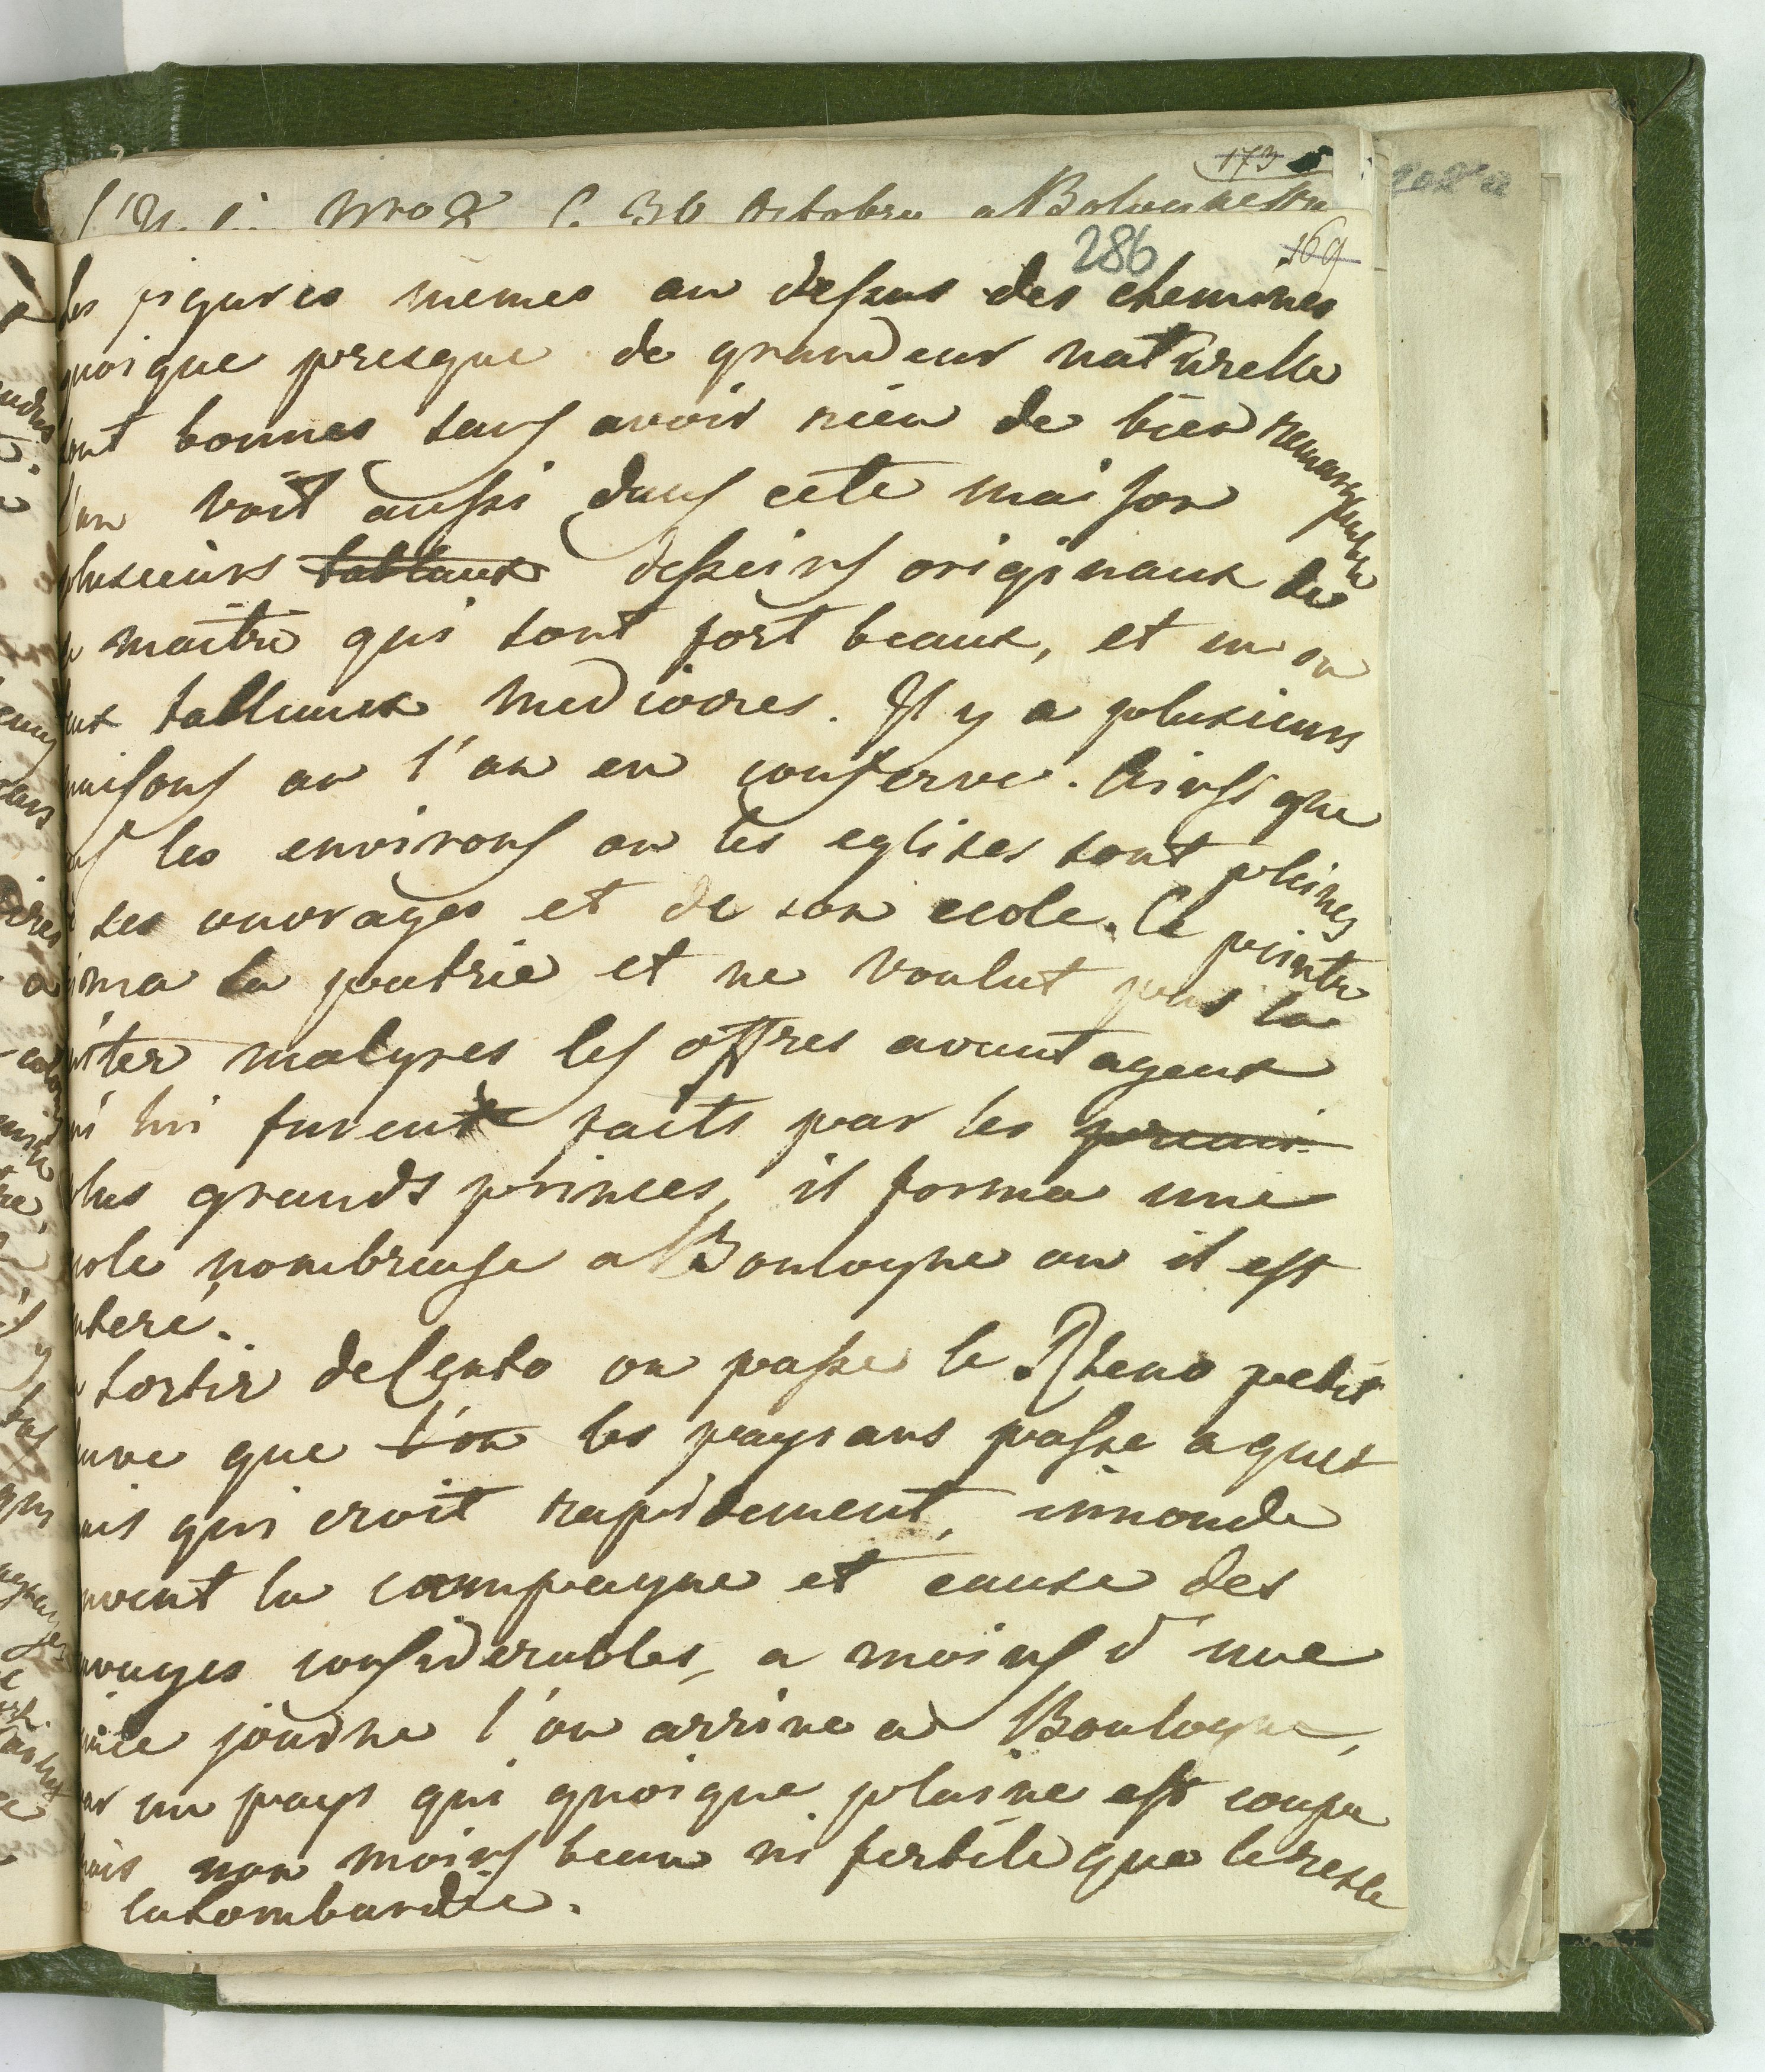 173
286
169
les figures mêmes au dessus des cheminés
quoique presque de grandeur naturelle
sont bonnes sans avoir rien de bien remarquable
l'on voit aussi dans cete maison
plusieurs tableaux desseins originaux de
maitre qui sont fort beaux, et un ou
tableaux mediocres. Il y a plusieurs
maisons ou l'on en conserve. Ainsi que
les environs ou les eglises sont pleines
ses ouvrages et de son ecole. Ce peintre
aima la patrie et ne voulut pas la
quiter malgres les offres avantageux
qui lui furent faits par les premi
plus grands princes, il forma une
ecole nombreuse a Boulogne ou il est
enteré.
sortir de Cento on passe le Rheno petit
fleuve que l'on les paysans passe a guet
mais qui croit rapidement, innonde
souvent la campagne et cause des
ravages considerables, a moins d'une
journe l'on arrive a Boulogne,
par un pays qui quoique plaine est coupe
mais non moins beau ni fertile que le reste
la Lombardie.